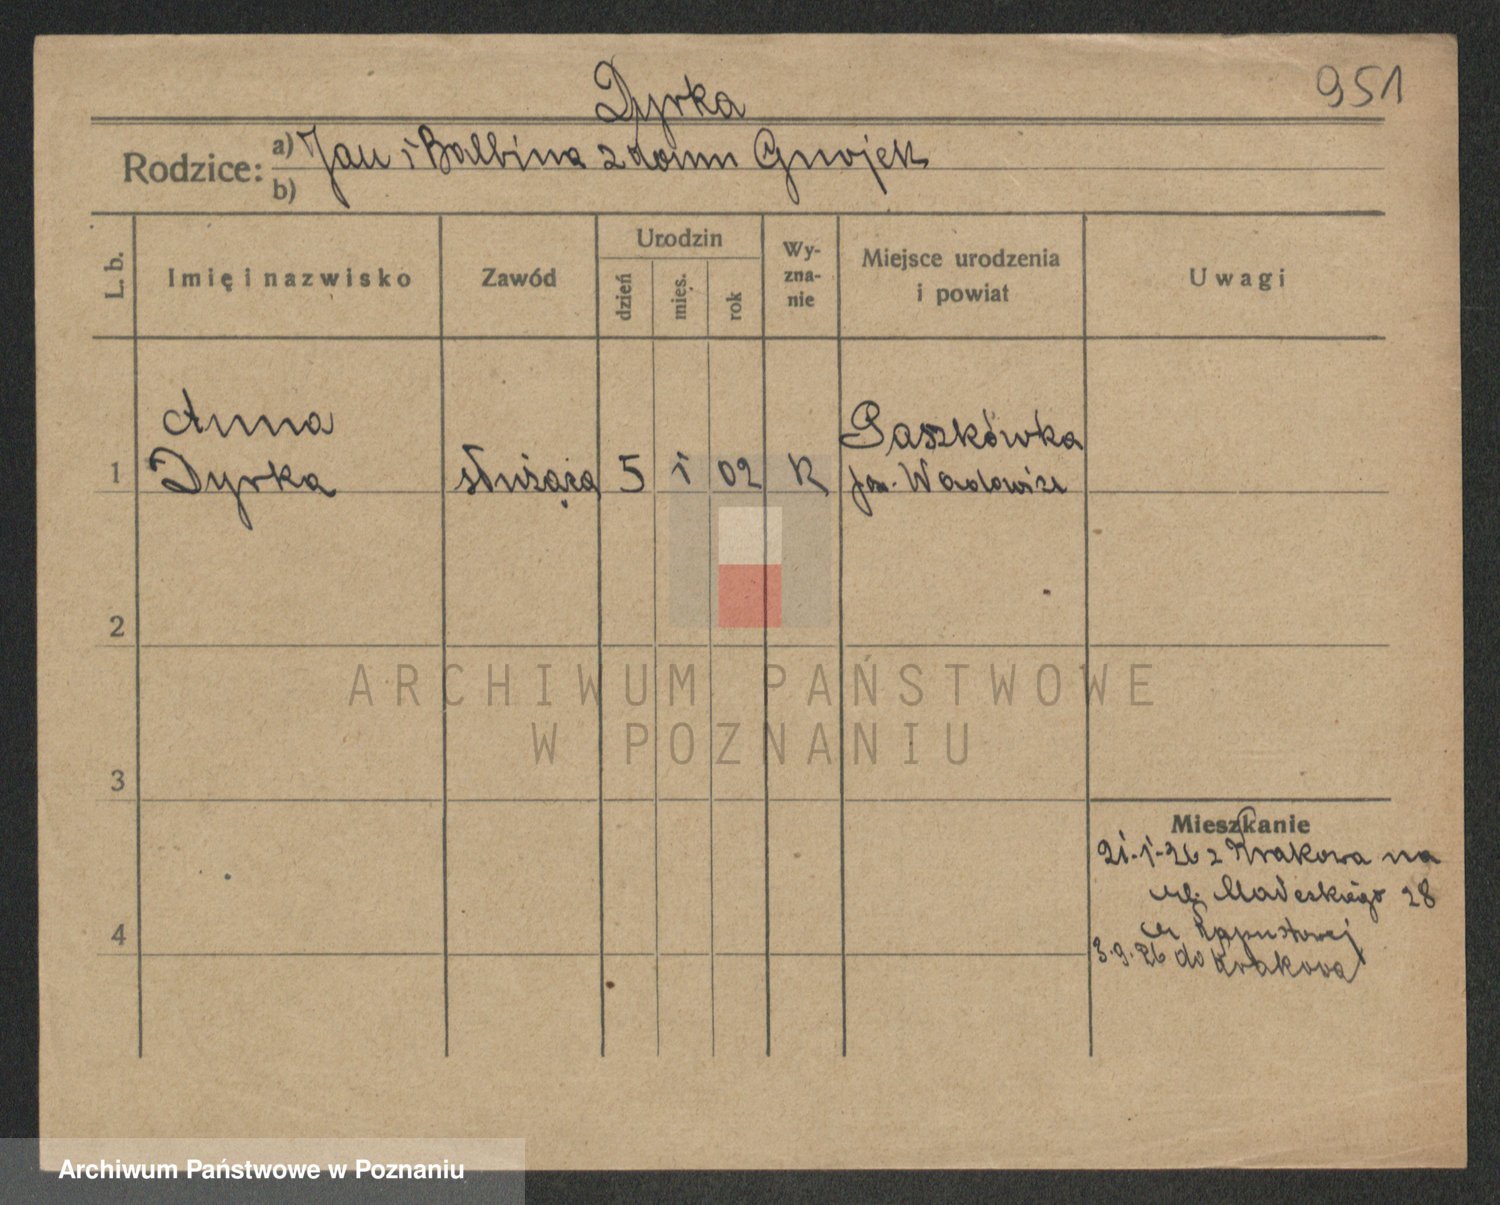 951
Dyrka
Rodzice: a) Jan i Balbina z domu Gwojek
b)
L. b.
Imię i nazwisko
Zawód
Urodzin
dzień
mies.
rok
Wy-
zna-
nie
Miejsce urodzenia
i powiat
Uwagi
Anna
Paszkówka
1 Dyrka służąca 5 1 02 R pow. Wadowice
2
ARCHIWUM PAŃSTWOWE
W POZNANIU
3
Mieszkanie
21-1-26 z Krakowa na
ul. 28
4 u Kapustowej
3.9.26 do Krakowa
Archiwum Państwowe w Poznaniu